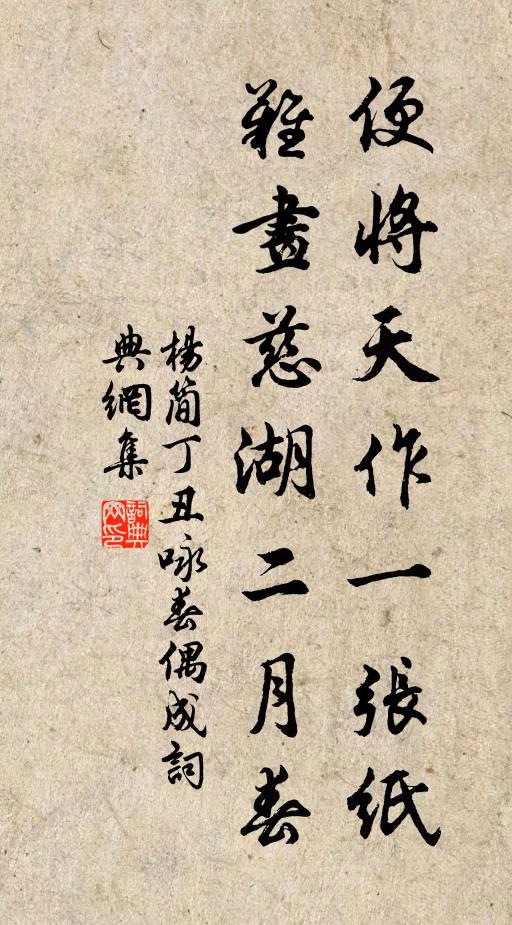 便將天作一張紙
難畫慈湖二月春
楊簡丁丑咏春偶成詞
典網集
詞典網印